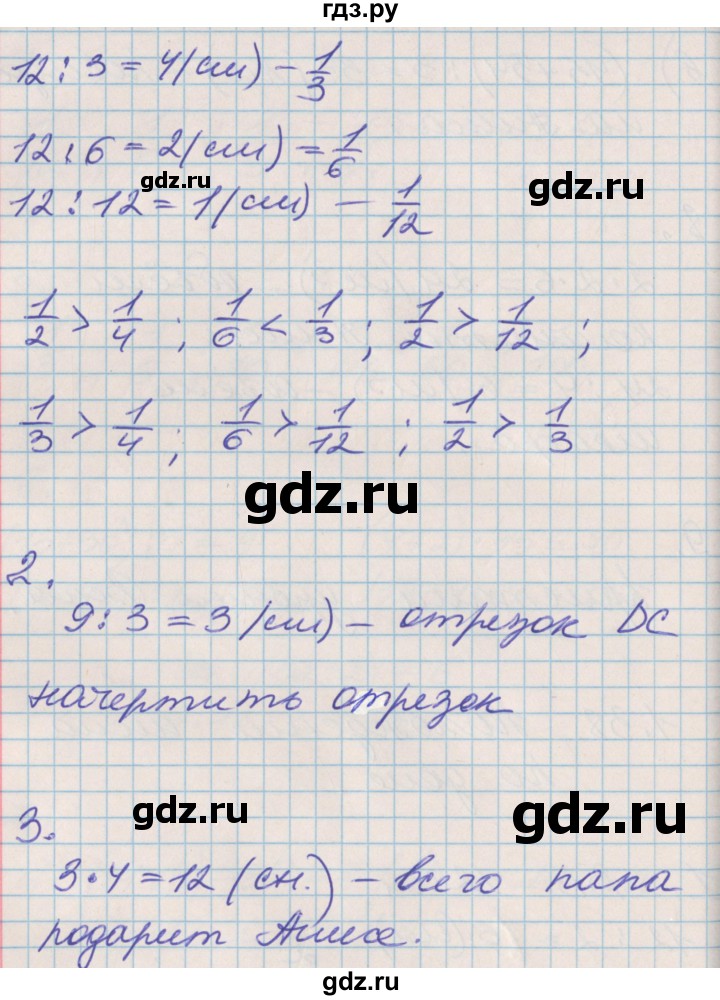 гдз.ру
12 : 3 = 4 (см) – 1/3
12 : 6 = 2 (см) = 1/6
gdz.ru
gdz.ru
12 : 12 = 1 (см) – 1/12
1/2 > 1/4 ; 1/6 < 1/3 ; 1/2 > 1/12 ;
1/3 > 1/4 ; 1/6 > 1/12 ; 1/2 > 1/3
gdz.ru
2.
9 : 3 = 3 (см) – отрезок DC
начертить отрезок
gdz.ru
gdz.ru
3.
3 · 4 = 12 (сн.) – всего папа
подарит Алисе.
gdz.ru